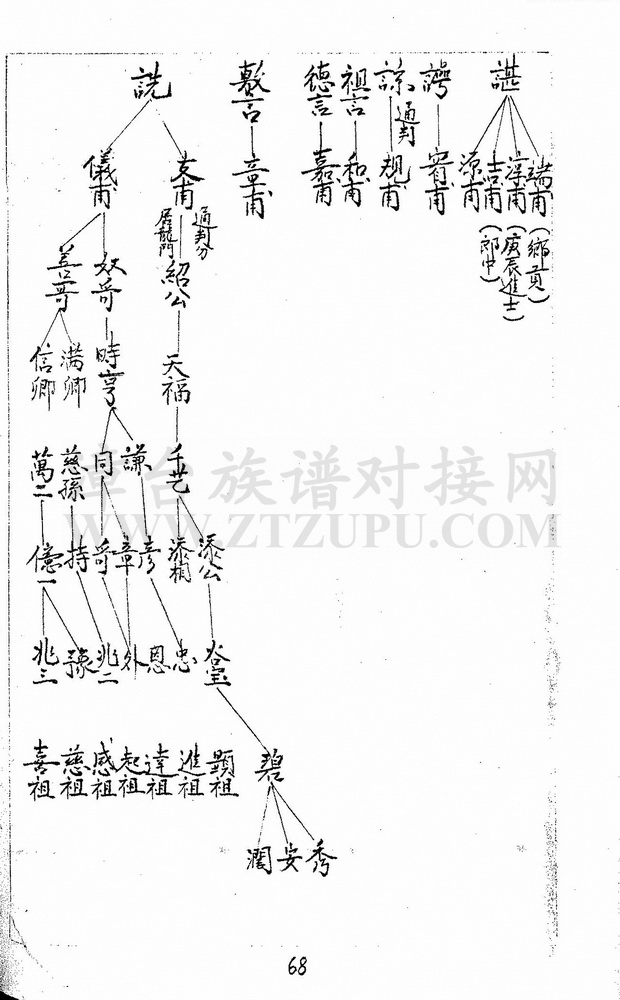 諶
端甫（鄉貢）
淳甫（庚辰進士）
吉甫（郎中）
源甫
諤
賓甫
諒
通判
规甫
祖言
和甫
德言
嘉甫
敷言
章甫
詵
支甫
通判分
居龍門
儀甫
紹公
奴哥
善哥
天福
時亨
满卿
信卿
千艺
謙
同
慈孫
萬二
添公
添相
彦
章
哥
持
億一
谷宝
忠
恩
外
兆二
豫
兆三
碧
顕祖
進祖
達祖
起祖
感祖
慈祖
喜祖
秀
安
潤
卓台族谱对接网
WWW.ZTZUPU.COM
68